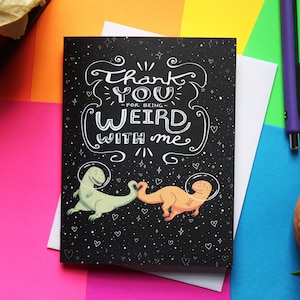 Thank
YOU
- FOR BEING -
WEIRD
WITH me